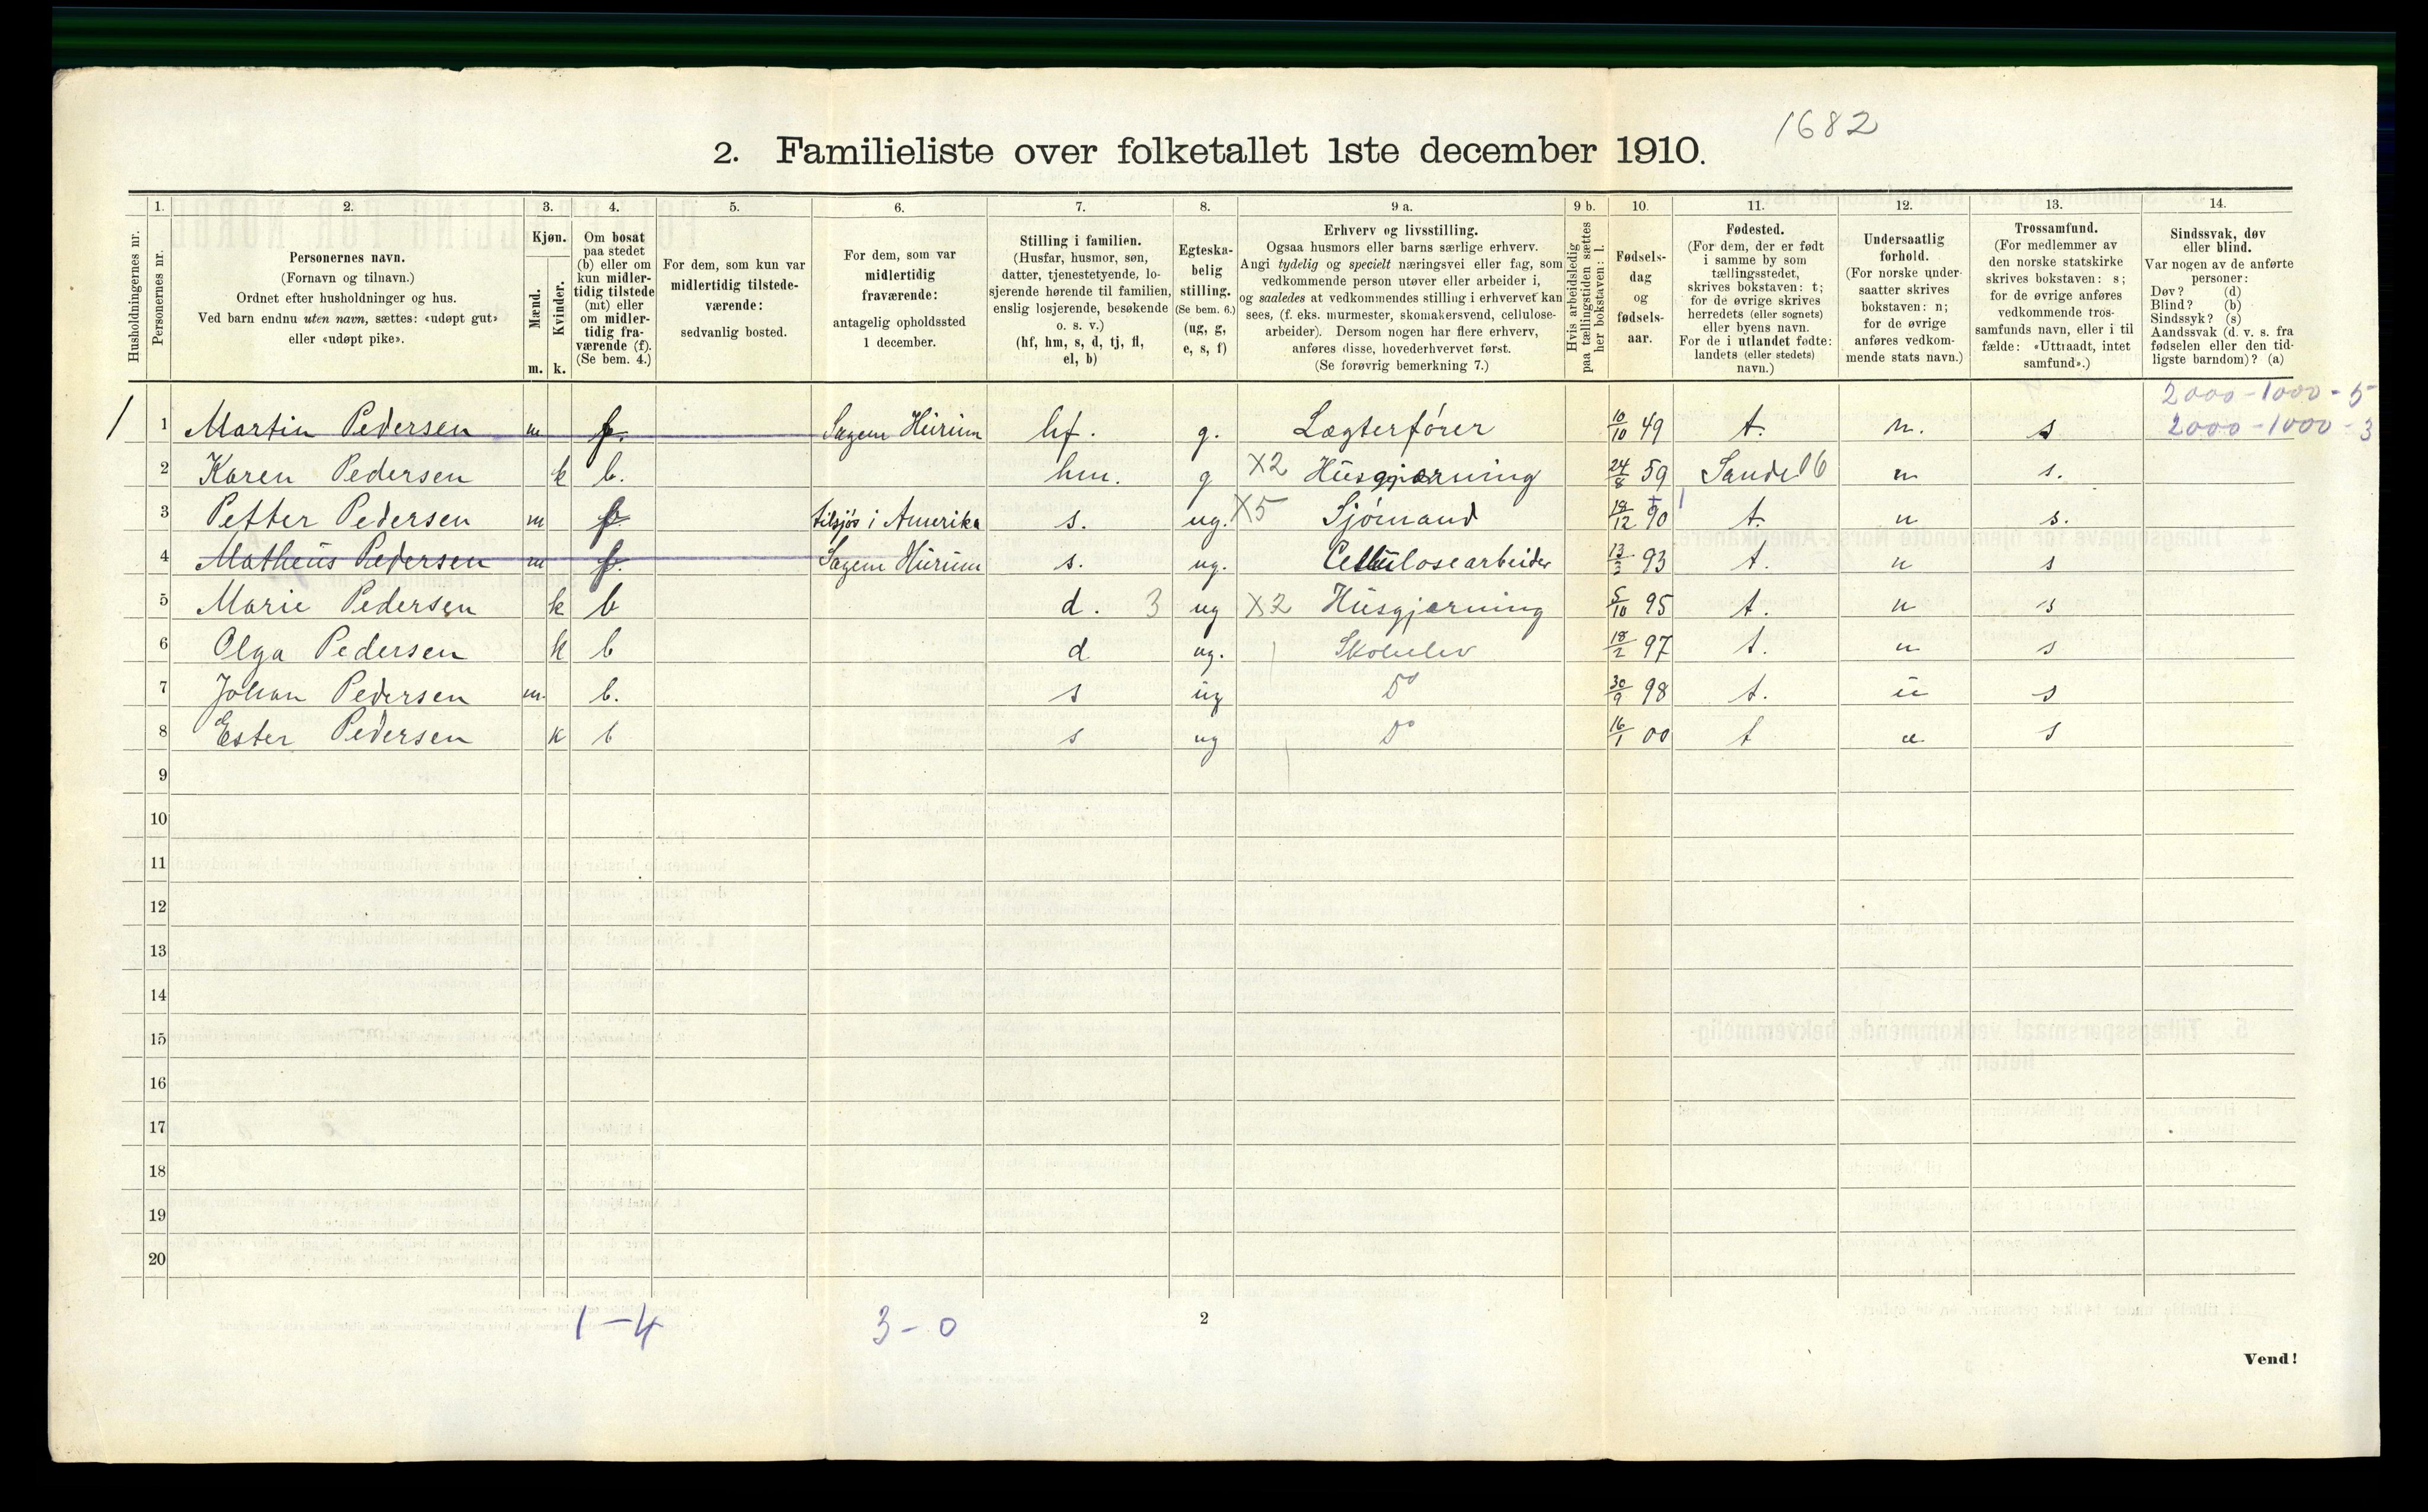 1682
2. Familieliste over folketallet 1ste december 1910.
Husholdningernes nr.
1. Personernes nr.
2. Personernes navn.
(Fornavn og tilnavn.)
Ordnet efter husholdninger og hus.
Ved barn endnu uten navn, sættes: «udøpt gut»
eller «udøpt pike».
3. Kjøn.
Mænd. m.
Kvinder. k.
4. Om bosat
paa stedet
(b) eller om
kun midler-
tidig tilstede
(mt) eller
om midler-
tidig fra-
værende (f).
(Se bem. 4.)
5. For dem, som kun var
midlertidig tilstede-
værende:
sedvanlig bosted.
6. For dem, som var
midlertidig
fraværende:
antagelig opholdssted
1 december.
7. Stilling i familien.
(Husfar, husmor, søn,
datter, tjenestetyende, lo-
sjerende hørende til familien,
enslig losjerende, besøkende
o. s. v.)
(hf, hm, s, d, tj, fl,
el, b)
8. Egteska-
belig
stilling.
(Se bem. 6.)
(ug, g,
e, s, f)
9 a. Erhverv og livsstilling.
Ogsaa husmors eller barns særlige erhverv.
Angi tydelig og specielt næringsvei eller fag, som
vedkommende person utøver eller arbeider i,
og saaledes at vedkommendes stilling i erhvervet kan
sees, (f. eks. murmester, skomakersvend, cellulose-
arbeider). Dersom nogen har flere erhverv,
anføres disse, hovederhvervet først.
(Se forøvrig bemerkning 7.)
9 b. Hvis arbeidsledig
paa tællingstiden sættes
her bokstaven: l.
10. Fødsels-
dag
og
fødsels-
aar.
11. Fødested.
(For dem, der er født
i samme by som
tællingsstedet,
skrives bokstaven: t;
for de øvrige skrives
herredets (eller sognets)
eller byens navn.
For de i utlandet fødte:
landets (eller stedets)
navn.)
12. Undersaatlig
forhold.
(For norske under-
saatter skrives
bokstaven: n;
for de øvrige
anføres vedkom-
mende stats navn.)
13. Trossamfund.
(For medlemmer av
den norske statskirke
skrives bokstaven: s;
for de øvrige anføres
vedkommende tros-
samfunds navn, eller i til
fælde: «Uttraadt, intet
samfund».)
14. Sindssvak, døv
eller blind.
Var nogen av de anførte
personer:
Døv? (d)
Blind? (b)
Sindssyk? (s)
Aandssvak (d. v. s. fra
fødselen eller den tid-
ligste barndom)? (a)
2000-1000-5
1 1 Martin Pedersen m f. Sagene Hurum hf. g. Lægterfører 10/10 49 t. n. s 2000-1000-3
2 Karen Pedersen k b. hm. g X2 Husgjærning 24/8 59 Sande 06 n s.
3 Petter Pedersen m f tilsjøs i Amerika s. ug. X5 Sjømand 12 90 t. n s.
4 Matheus Pedersen m f. Sagene Hurum s. ug. Cellulosearbeider 13/3 93 t. n s
5 Marie Pedersen k b d. 3 ug X2 Husgjærning 5/10 95 t. n s
6 Olga Pedersen k b d ug. Skoleelev 18/2 97 t. n s
7 Johan Pedersen m. b. s ug Do 30/9 98 t. n s
8 Ester Pedersen k b s ug Do 16/1 00 t n s
9
10
11
12
13
14
15
16
17
18
19
20
1-4 3-0
2
Vend!